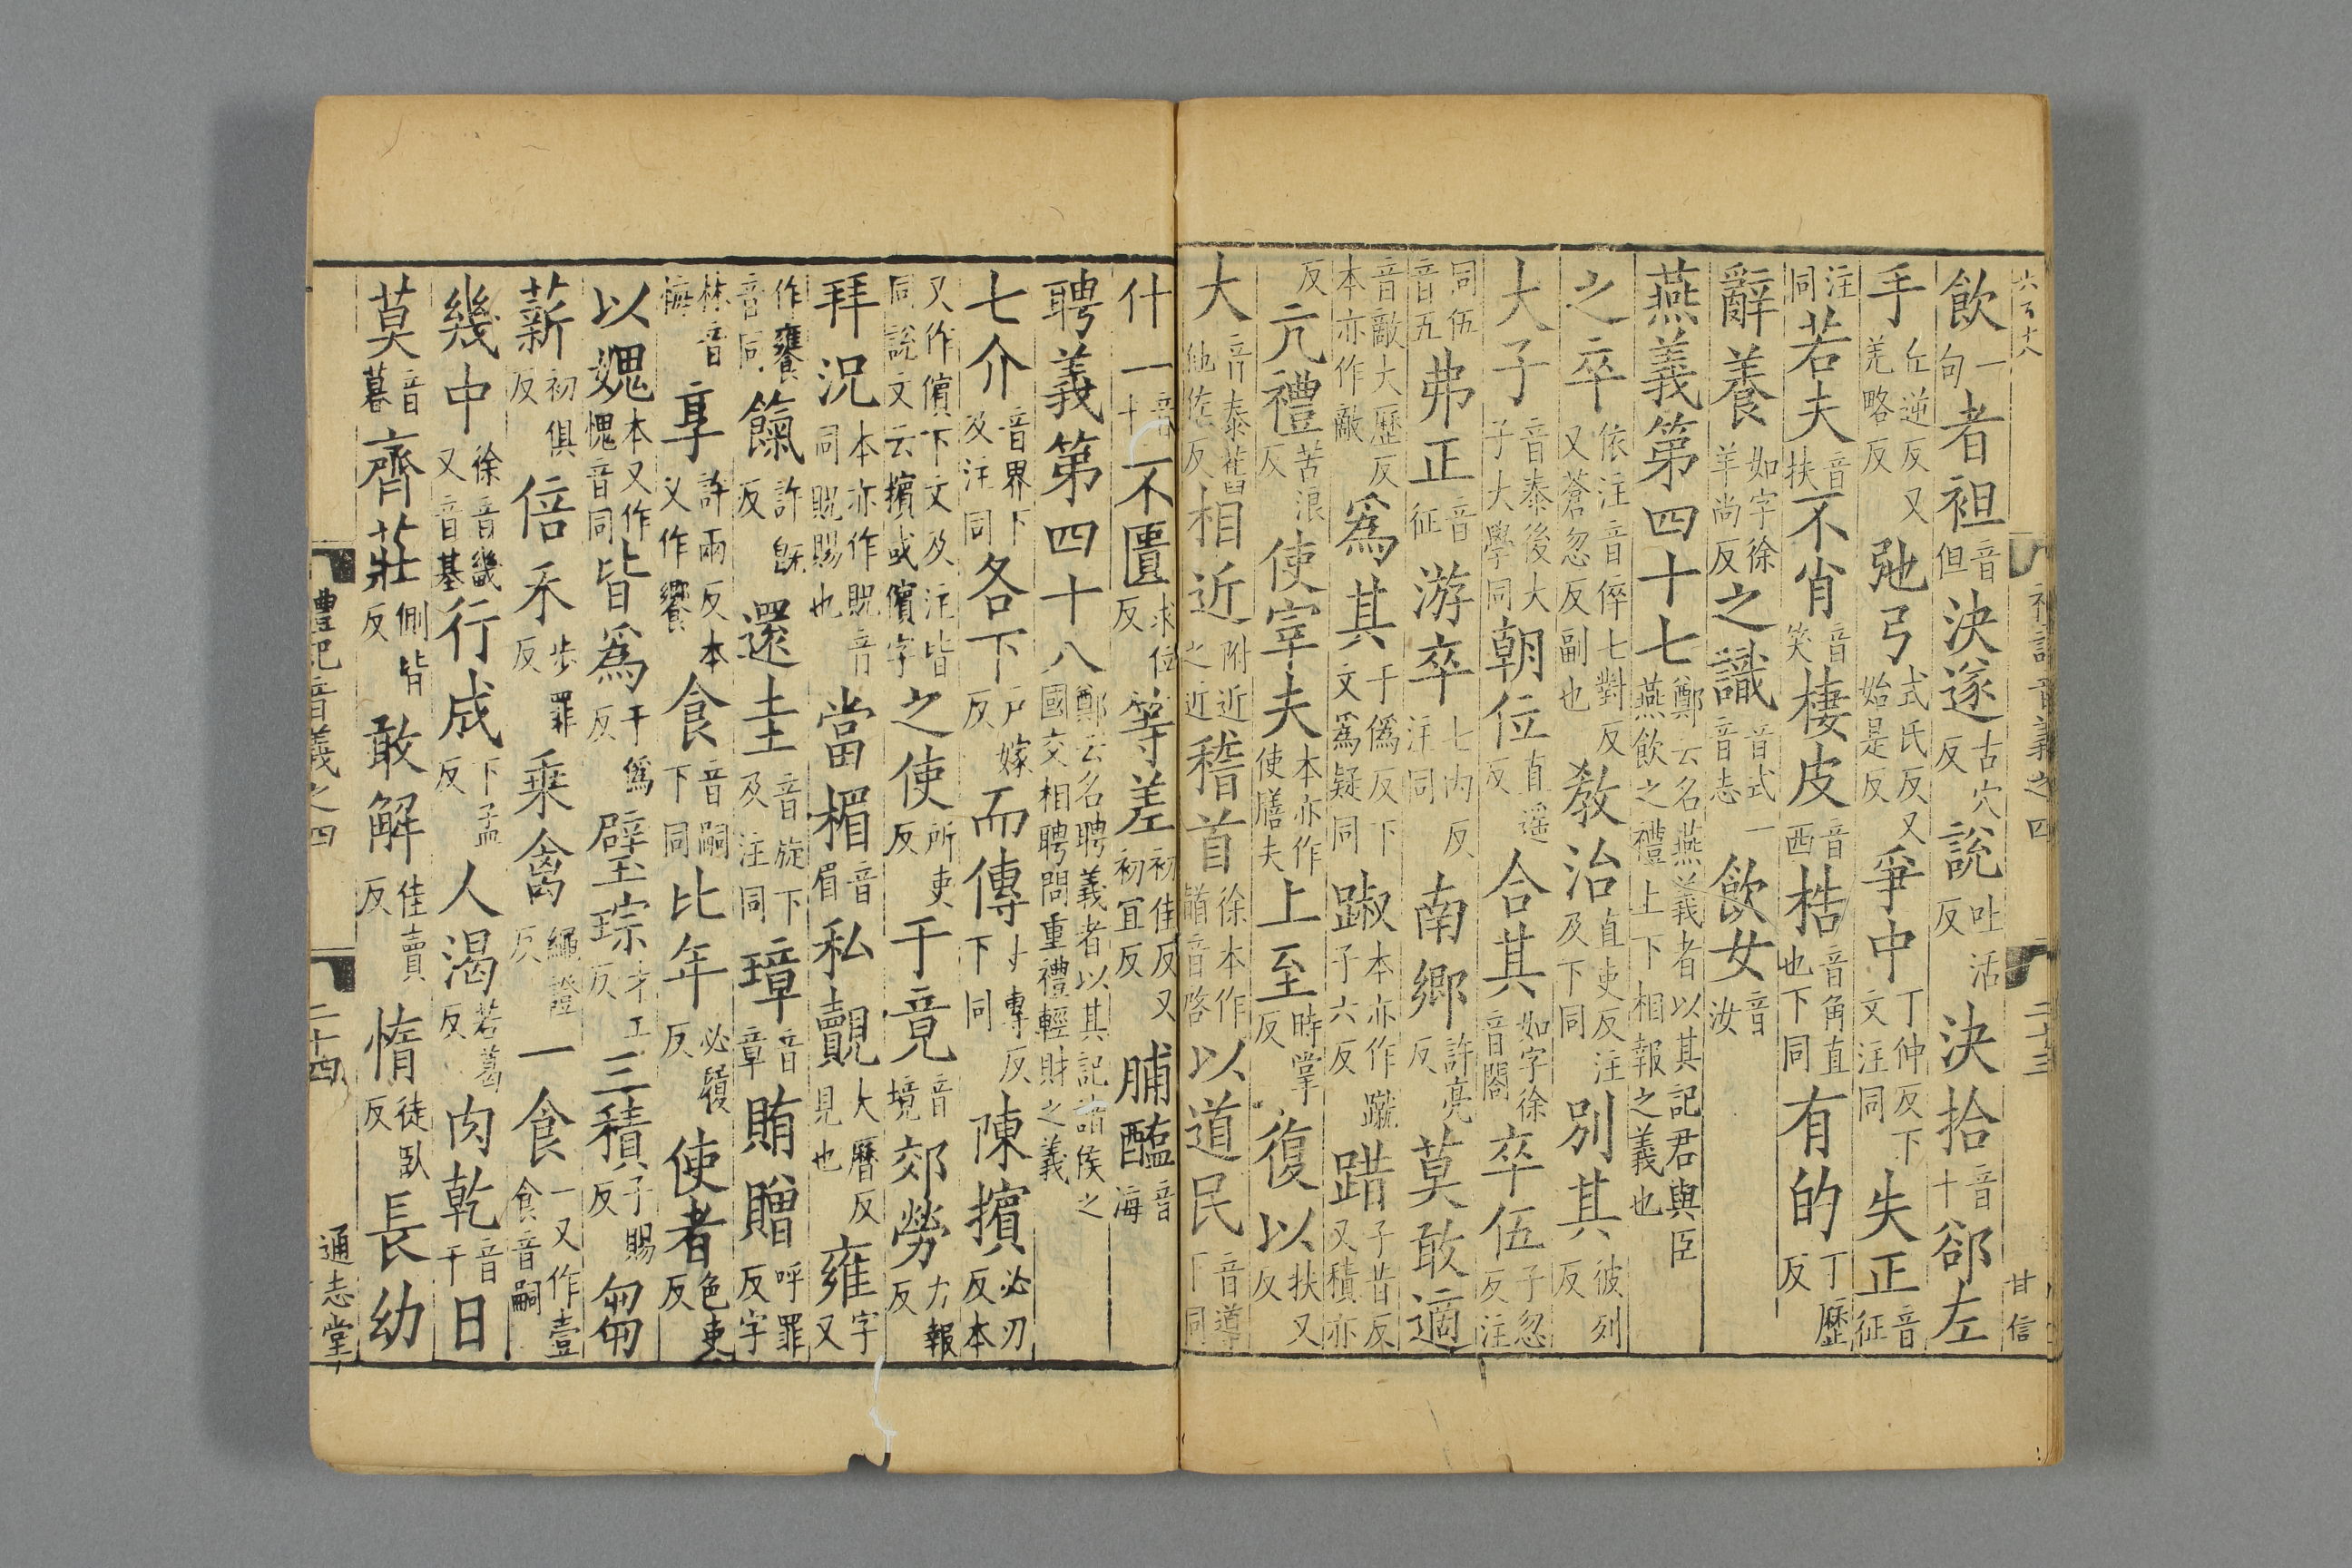 禮記音義之四 二十三 甘信
飲一句者袒音但決遂古穴反說吐活反決拾音十郤左
手丘逆反又羌略反弛弓式氏反又始是反爭中丁仲反下文注同失正音征
注同若夫音扶不肖音笑棲皮音西梏音角直也下同有的丁歷反
辭養如字徐羊尚反之識音式一音志飲女音汝
燕義第四十七鄭云名燕義者以其記君與臣燕飲之禮上下相報之義也
之卒依注音倅七對反又蒼忽反副也教治直吏反注及下同別其彼列反
大子音泰後大子大學同朝位直遥反合其如字徐音閤卒伍子忽反注
同伍音五弗正音征游卒七內反注同南鄉許亮反莫敢適
音敵大歷反本亦作敵爲其于僞反下文爲疑同踧本亦作蹴子六反踖子昔反又積亦
反亢禮苦浪反使宰夫本亦作使膳夫上至時掌反復以扶又反
大音泰舊他佐反相近附近之近稽首徐本作䭫音啓以道民音導下同
什一音十不匱求位反等差初佳反又初宜反脯醢音海
聘義第四十八鄭云名聘義者以其記諸侯之國交相聘問重禮輕財之義
七介音界下及注同各下戸嫁反而傳丈專反下同陳擯必刃反本
又作儐下文及注皆同說文云擯或儐字之使所吏反于竟音境郊勞力報反
拜況本亦作貺音同貺賜也當楣音眉私覿大曆反見也雍字又
作饔音同餼許旣反還圭音旋下及注同璋音章賄贈呼罪反字
林音悔享許兩反本又作饗食音嗣下同比年必履反使者色吏反
以媿本又作愧音同皆爲于僞反璧琮才工反三積子賜反芻
薪初俱反倍禾步罪反乗禽繩證反一食一又作壹食音嗣
幾中徐音畿又音基行成下孟反人渴苦葛反肉乾音干日
莫音暮齊莊側皆反敢解佳賣反惰徒臥反長幼
禮記音義之四 二十四 通志堂